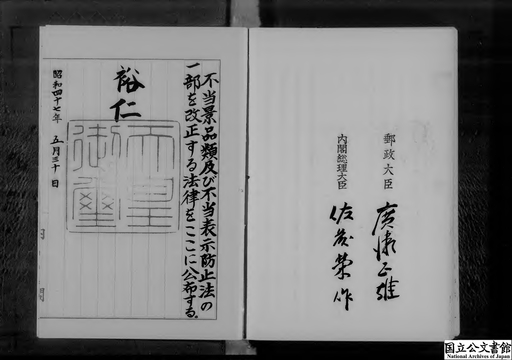 不当景品類及び不当表示防止法の
一部を改正する法律をここに公布する。
裕仁
天皇
御璽
昭和四十七年 五月三十日
郵政大臣 廣瀬正雄
内閣総理大臣 佐藤榮作
国立公文書館
National Archives of Japan